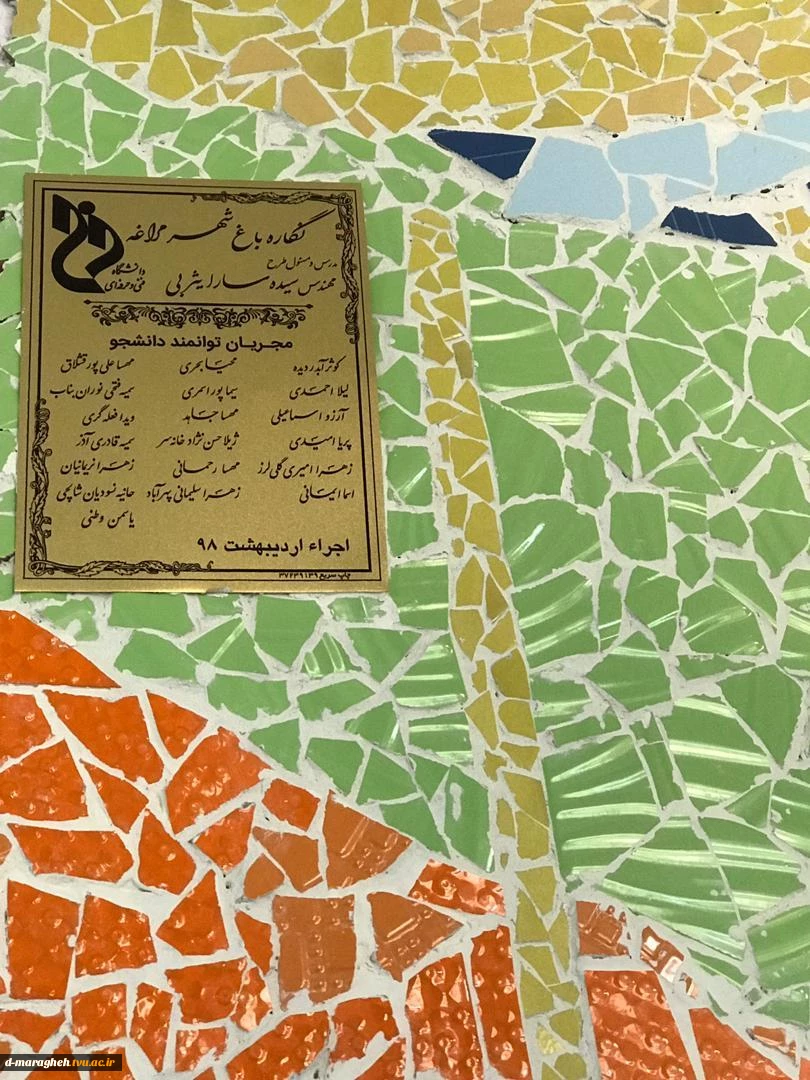 نگاره باغ شهر مراغه
دانشگاه
فنی و حرفه‌ای
مدرس و مسئول طرح
مهندس سیده سارا یثربی
مجریان توانمند دانشجو
کوثر آبدردیده محیا بحری مهسا علی پور قشلاق
لیلا احمدی سیما پور اسمری سمیه فتحی نوران بناب
آرزو اسماعیلی مهسا جباهد ویدا فعله گری
پریا امیدی ژیلا حسن نژاد خانه سر سمیه قادری آذر
زهرا امیری گلی لرز مهسا رحمانی زهرا نریمانیان
اسما ایمانی زهرا سلیمانی پهرآباد حانیه نسودیان شاپچی
یاسمن وطنی
اجراء اردیبهشت ۹۸
چاپ سریع ۳۷۲۳۹۱۳۹
d-maragheh.tvu.ac.ir